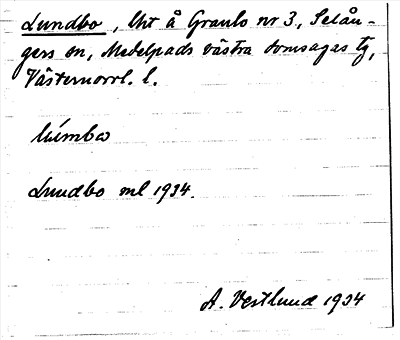 Lundbo, lht å Granlo nr 3, Selån-
gers sn, Medelpads västra domsagas tg,
Västernorrl. l.
lúmbω
Lundbo ml 1934.
A. Vestlund 1934